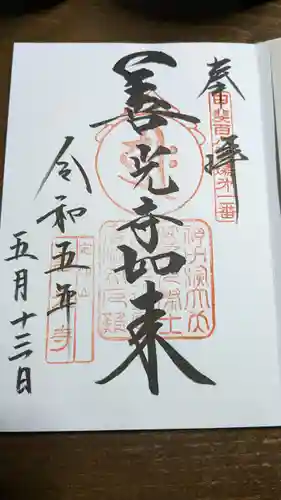 奉拝
甲斐百八霊場第一番
善光寺如来
令和五年
五月十三日